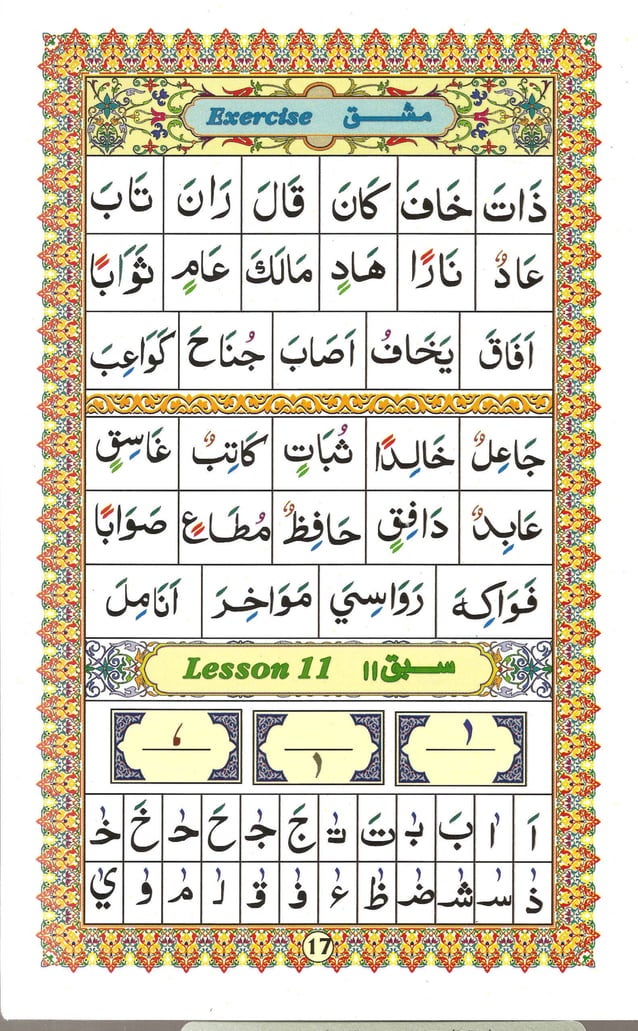 Exercise مشق
ذَاتَ خَافَ كَانَ قَالَ رَانَ تَابَ
عَادٌ نَارًا هَادٍ مَالَكَ عَامٍ ثَوَابًا
اَفَاقَ يَخَافُ اَصَابَ جُنَاحَ كَوَاعِبَ
جَاعِلٌ خَالِدًا ثُبَاتٍ كَاتِبٌ غَاسِقٍ
عَابِدٌ دَافِقٍ حَافِظٌ مُطَاعٍ صَوَابًا
فَوَاكِهَ رَوَاسِيَ مَوَاخِرَ اَنَامِلَ
Lesson 11 سبق ١١
ـٰ ـٖ ـٗ
اَ اٰ بَ بٰ تَ تٰ جَ جٰ حَ حٰ خَ خٰ
ذٰ سٰ شٰ ضٰ ظٰ ءٰ فٰ قٰ لٰ مٰ وٰ يٰ
17